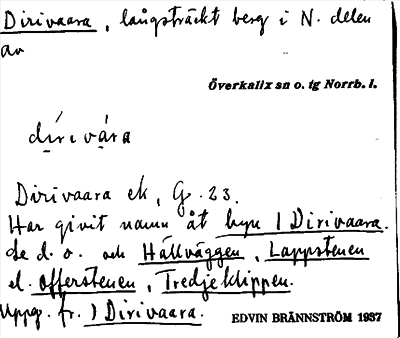 Dirivaara, långsträckt berg i N. delen
av
Överkalix sn o. tg Norrb. l.
dírivára
Dirivaara ek, G. 23.
Har givit namn åt byn 1 Dirivaara.
Se d. o. och Hällväggen, Lappstenen
el. Offerstenen, Tredjeklippen.
Uppg. fr. 1 Dirivaara.
EDVIN BRÄNNSTRÖM 1937